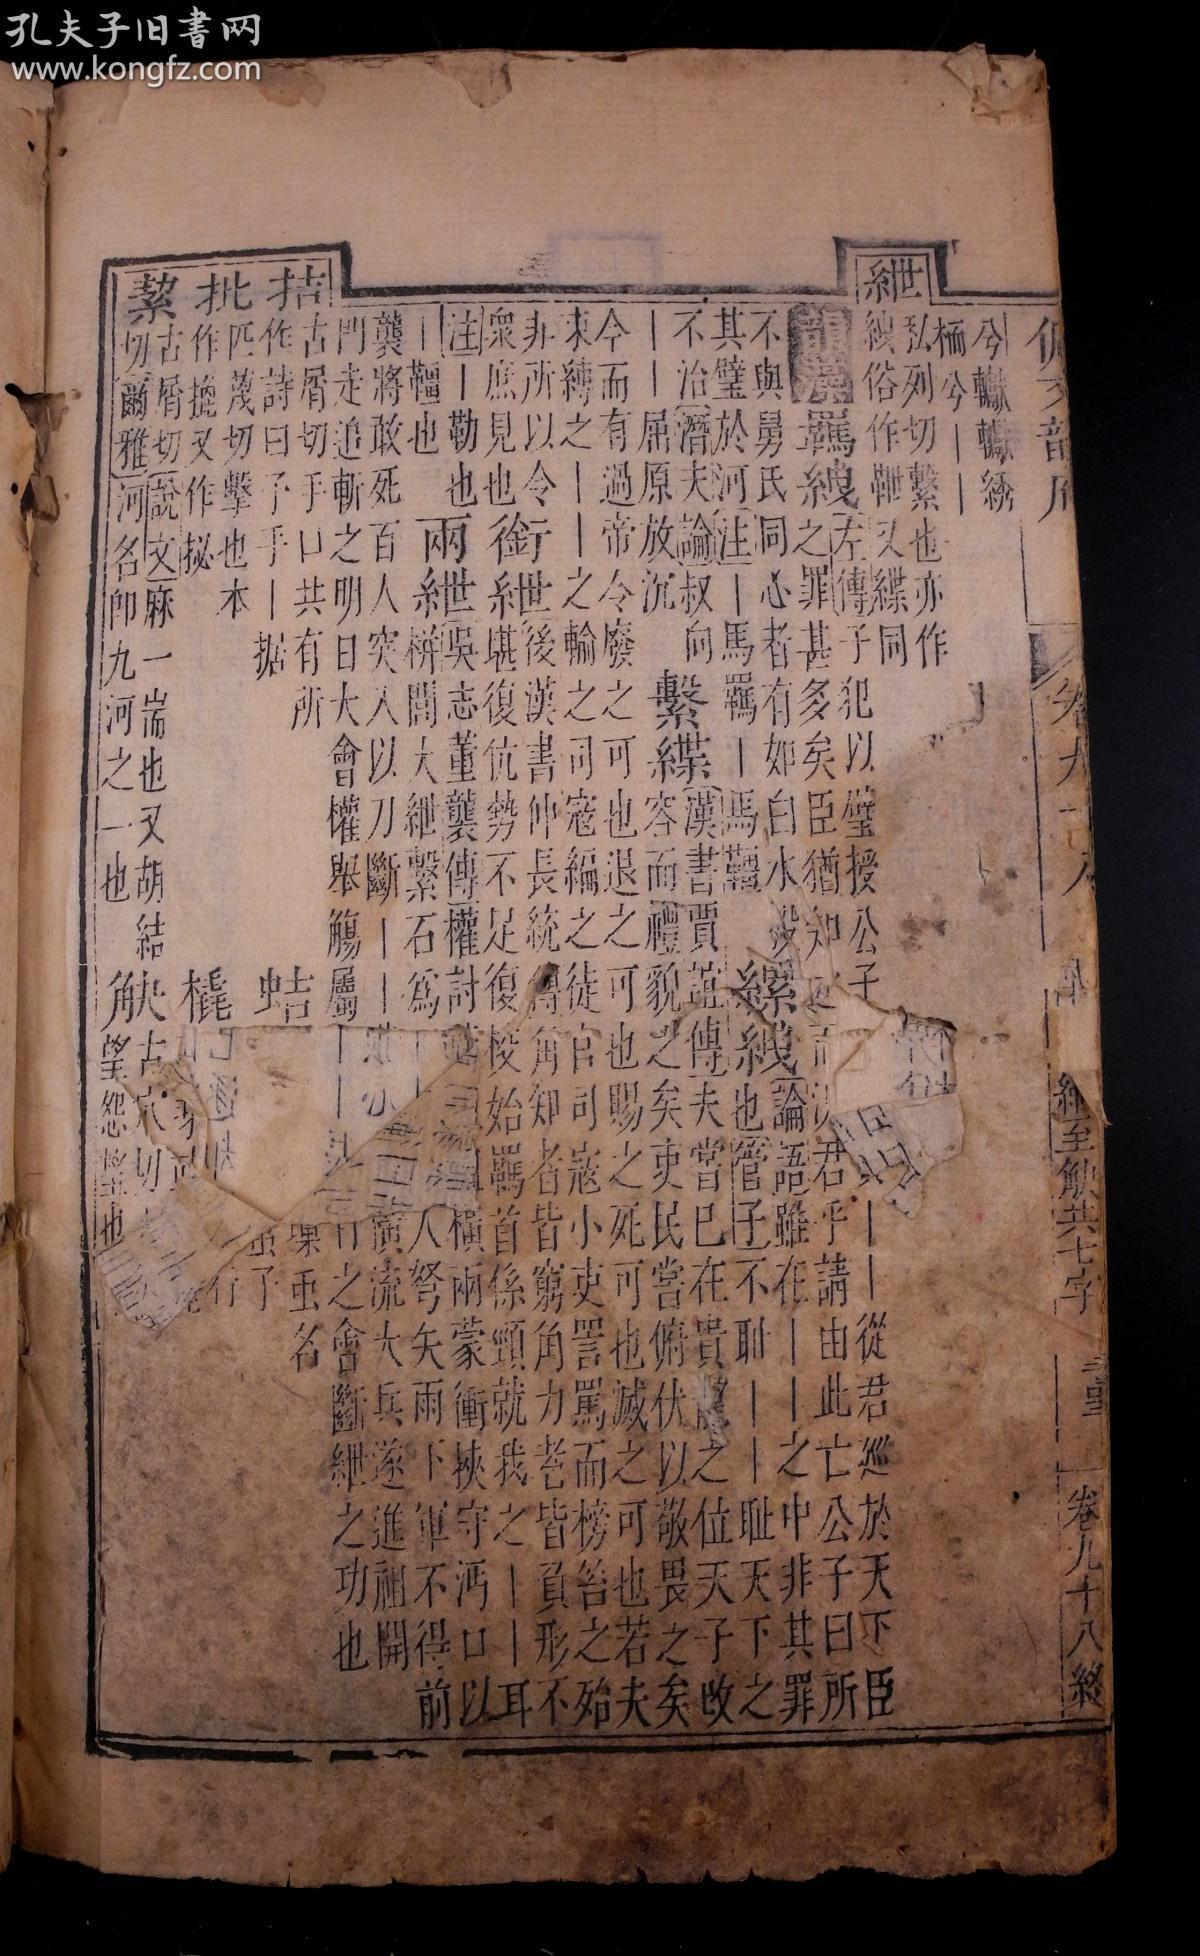 孔夫子旧書网
www.kongfz.com
卷九十八
紲至觖共七字
卷九十八終
兮轣轣綉
𣑱兮｜｜
紲
私列切繫也亦作
絏俗作靾又緤同
羈絏
左傳子犯以璧授公子曰臣｜｜從君巡於天下臣
之罪甚多矣臣猶知之而況君乎請由此亡公子曰所
不與舅氏同心者有如白水投
其璧於河注｜馬羈｜馬韁
縲絏
論語雖在｜｜之中非其罪
也管子不耻｜｜耻天下之
不治潛夫論叔向
｜｜屈原放沉
繫緤
漢書賈誼傳夫當已在貴寵之位天子改
容而禮貌之矣吏民嘗俯伏以敬畏之矣
今而有過帝令廢之可也退之可也賜之死可也滅之可也若夫
束縛之｜｜之輸之司寇編之徒官司寇小吏詈罵而榜笞之殆
非所以令
衆庶見也
銜紲
後漢書仲長統傳角知者皆窮角力者皆負形不
堪復伉勢不足復校始羈首係頸就我之｜｜耳
注｜勒也
｜韁也
兩紲
吳志董襲傳權討黃祖橫兩蒙衝挾守沔口以
栟閭大紲繫石爲
人弩矢雨下軍不得前
襲將敢死百人突入以刀斷｜｜
廣流大兵遂進祖開
門走追斬之明日大會權舉觴屬
之會斷紲之功也
拮
古屑切手口共有所
作詩曰予手｜据
蛣
虫名
批
匹蔑切擊也本
作㧙又作㧙
橇
行
絜
古屑切說文麻一耑也又胡結
切爾雅河名即九河之一也
觖
古穴切
望怨望也